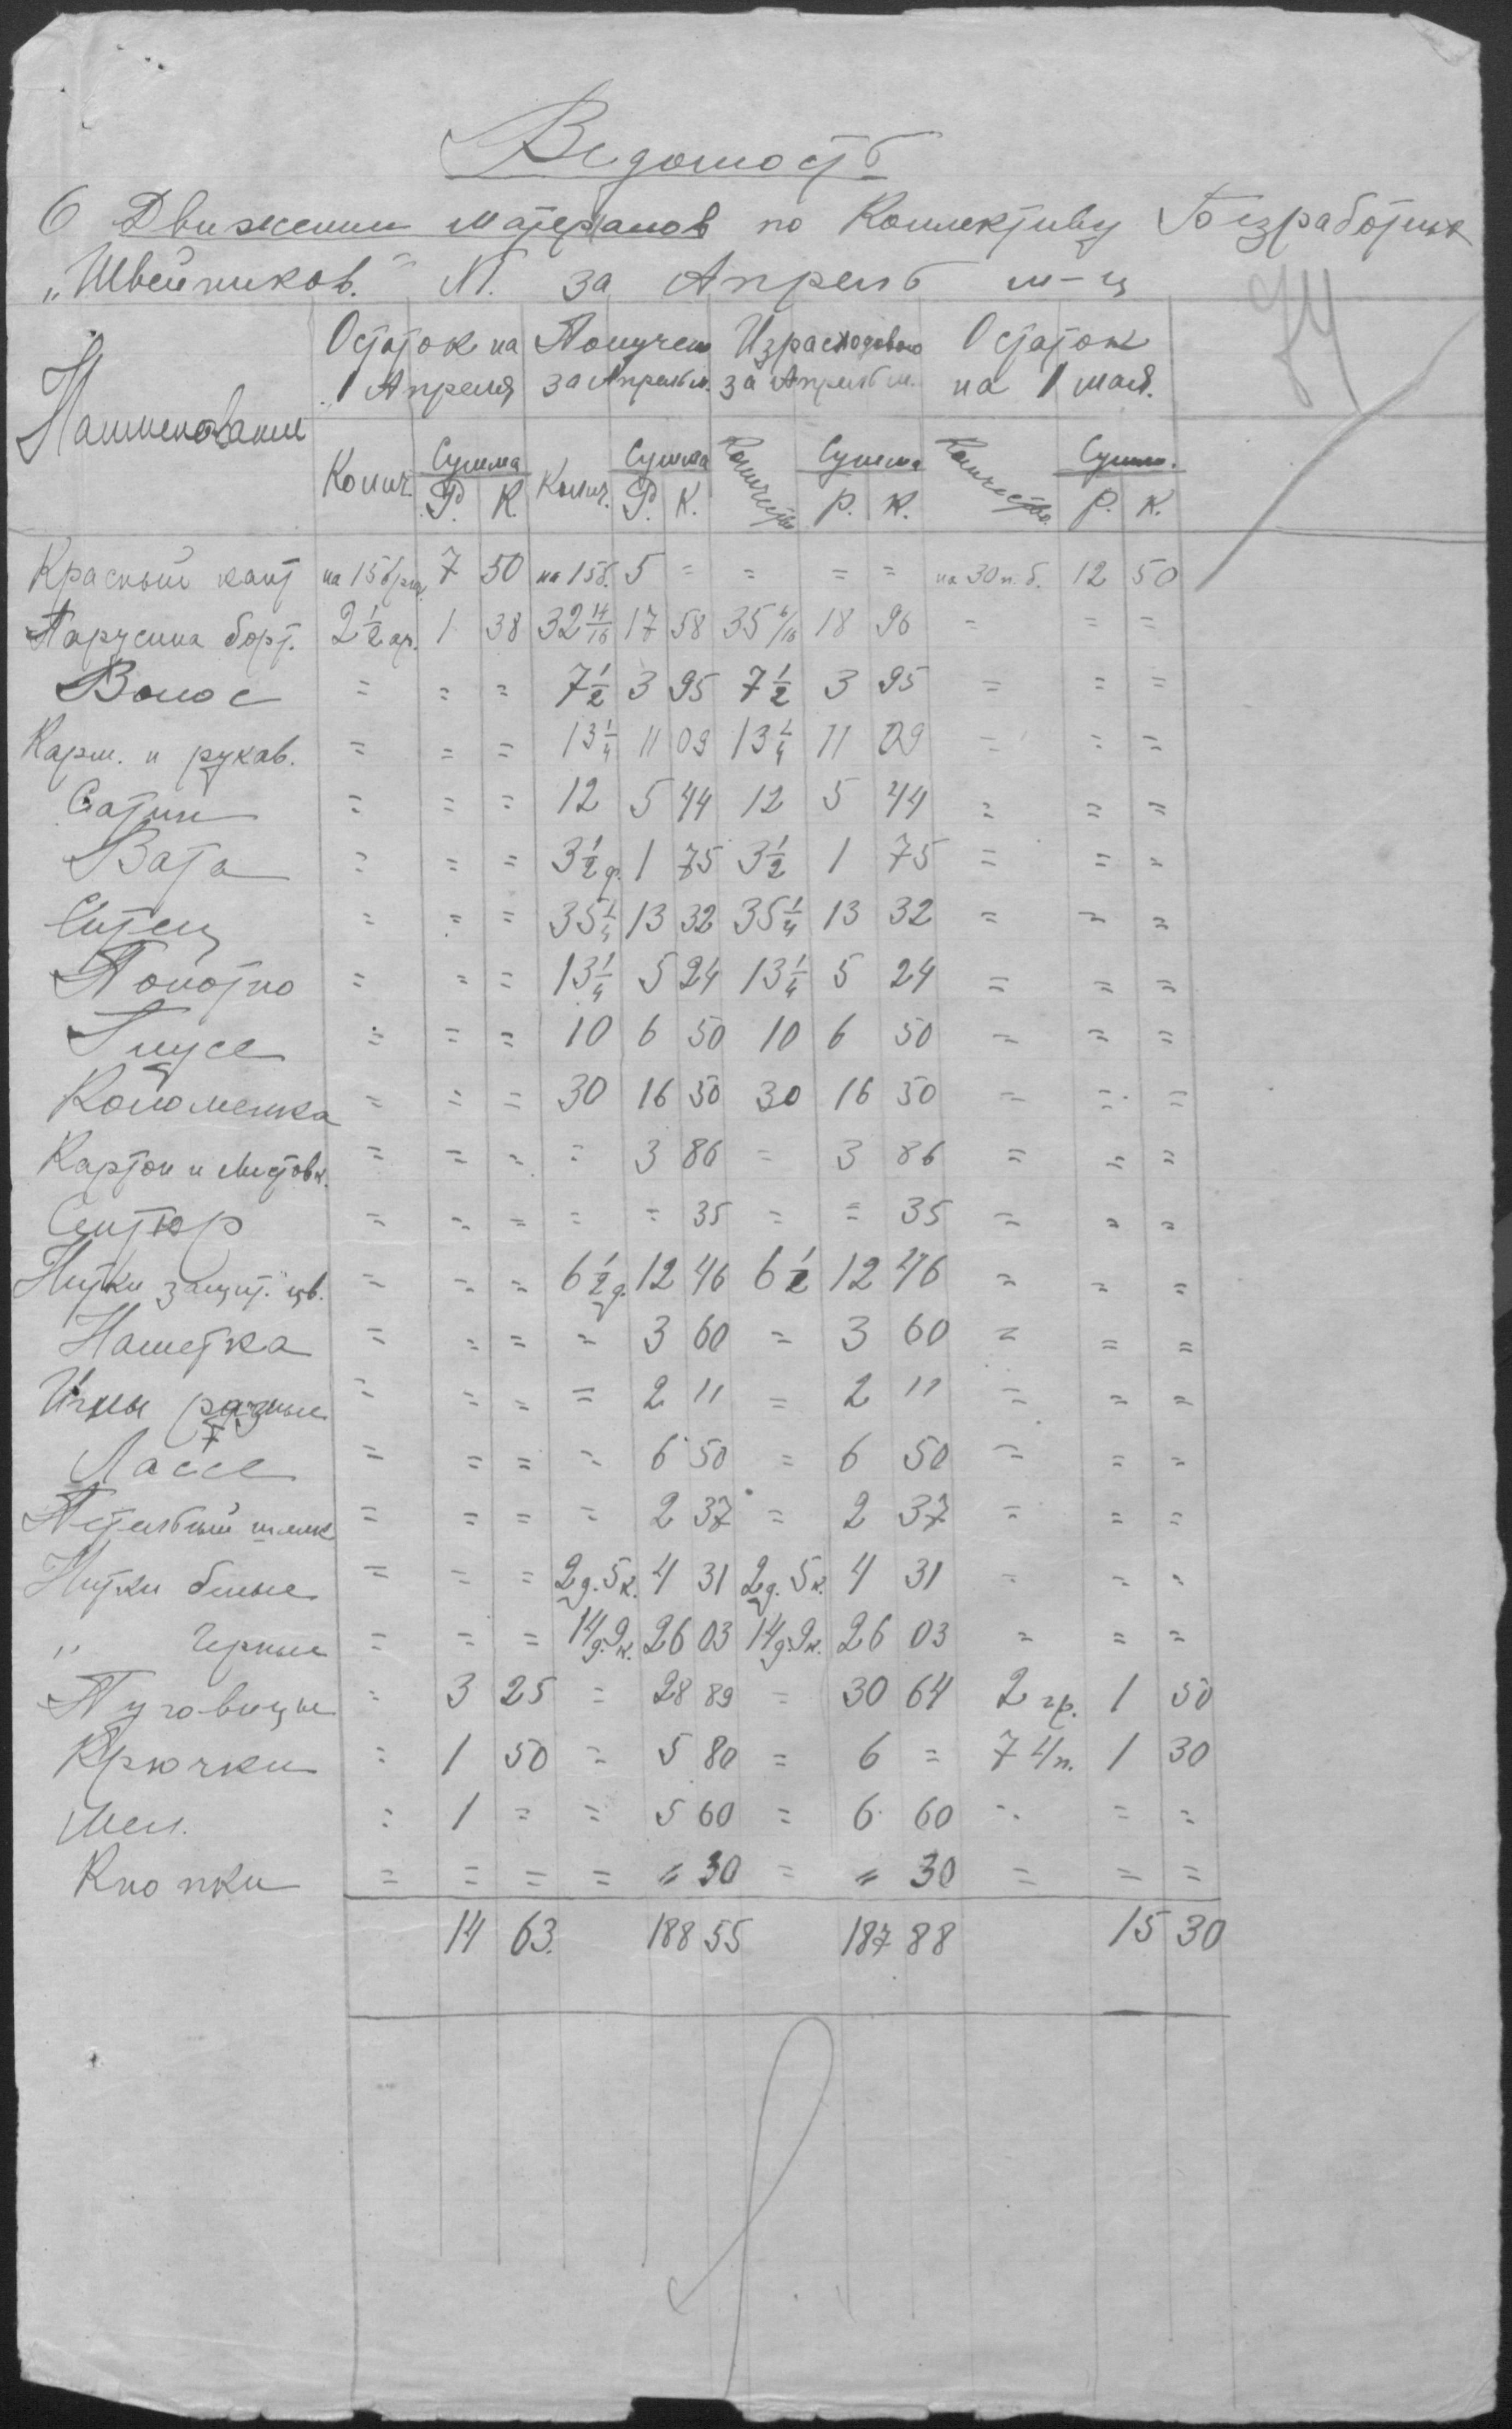 Ведомость
О Движении материалов по Коллективу Безработных
„Швейников." N. за Апрель м-ц
Наименование Остаток на 1 Апреля Получен за Апрель м. Израсходовано за Апрель м. Остаток на 1 мая.
Колич. Сумма Р. К. Колич. Сумма Р. К. Количество Сумма Р. К. Количество Сумма. Р. К.
Красный кант на 15 7 50 на 15б. 5 = = = = на 30 п. б. 12 50
Парусина борт. 2 1/2 ар. 1 38 32 14/16 17 58 35 6/16 18 96 = = =
Волос = = = 7 1/2 3 95 7 1/2 3 95 = = =
Карм. и рукав. = = = 13 1/4 11 09 13 1/4 11 09 = = =
Сатин = = = 12 5 44 12 5 44 = = =
Вата = = = 3 1/2 ф. 1 75 3 1/2 1 75 = = =
Ситец = = = 35 1/4 13 32 35 1/4 13 32 = = =
Полотно = = = 13 1/4 5 24 13 1/4 5 24 = = =
= = = 10 6 50 10 6 50 = = =
Коломенка = = = 30 16 50 30 16 50 = = =
Картон и листовк. = = = = 3 86 = 3 86 = = =
Сентюр = = = = = 35 = = 35 = = =
Нитки защит. цв. = = = 6 1/2 д. 12 46 6 1/2 12 46 = = =
Наметка = = = = 3 60 = 3 60 = = =
Иглы разные = = = = 2 11 = 2 11 = = =
Лассе = = = = 6 50 = 6 50 = = =
Петельный шелк = = = = 2 37 = 2 37 = = =
Нитки белые = = = 2д. 5к. 4 31 2д. 5к. 4 31 = = =
„ Черные = = = 14д. 9к. 26 03 14д. 9к. 26 03 = = =
Пуговицы = 3 25 = 28 89 = 30 64 2 гр. 1 50
Крючки = 1 50 = 5 80 = 6 = 7 4/п. 1 30
Мел. = 1 = = 5 60 = 6 60 = = =
Кнопки = = = = „ 30 = „ 30 = = =
14 63. 188 55 187 88 15 30